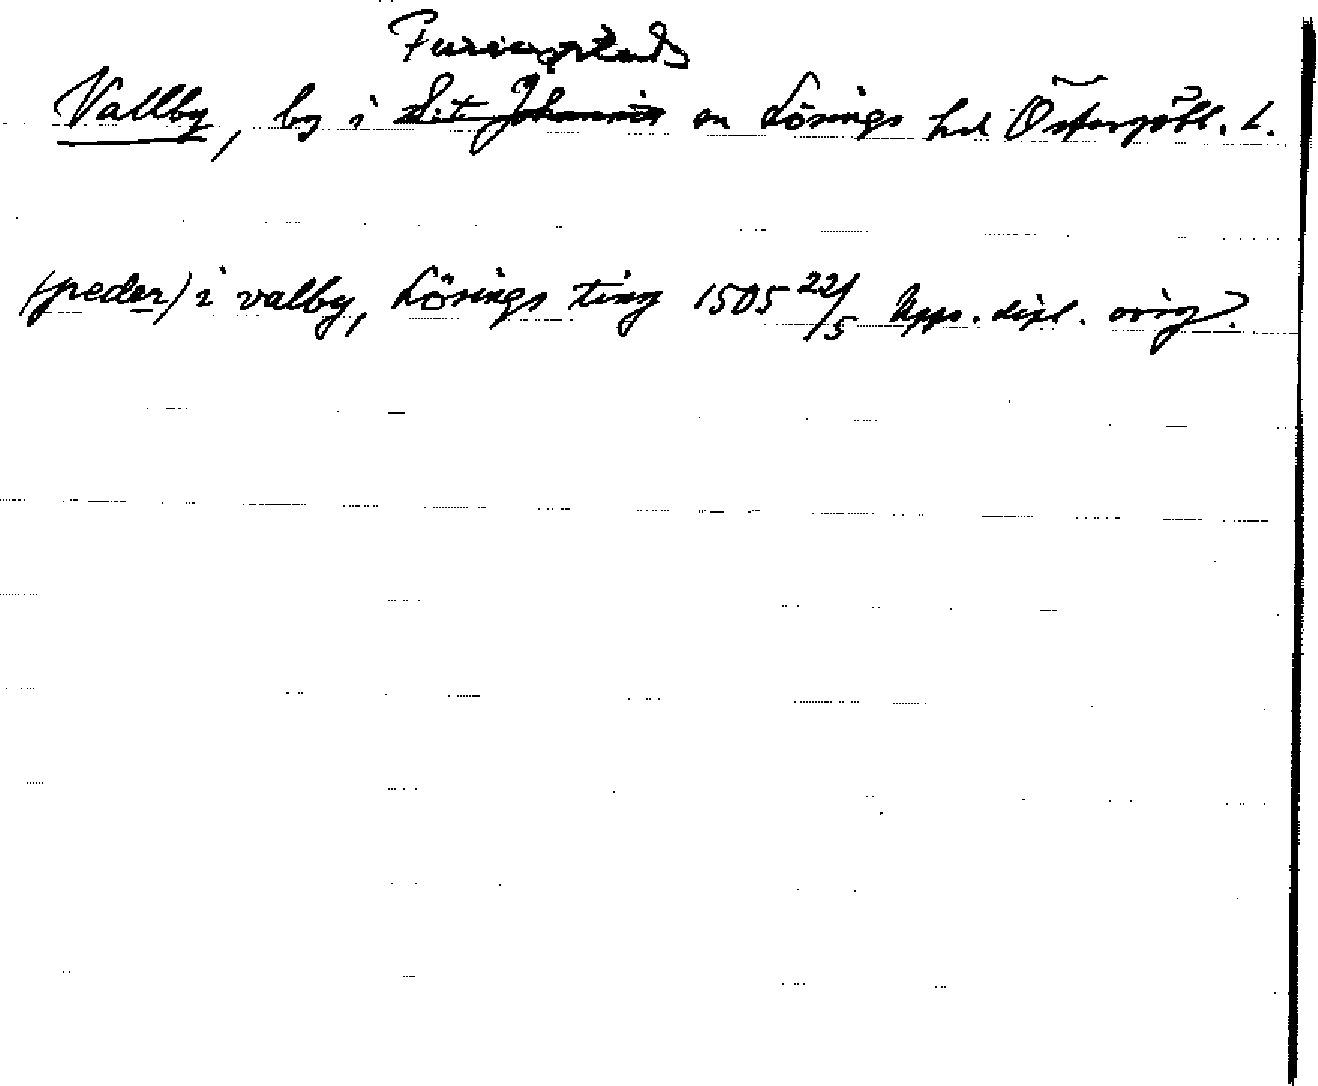 Furingstads
Vallby, by i S:t Johannis sn Lösings hd Östergötl. L.
(peder) i valby, Lösings ting 1505 22/5 Upps. dipl. orig.